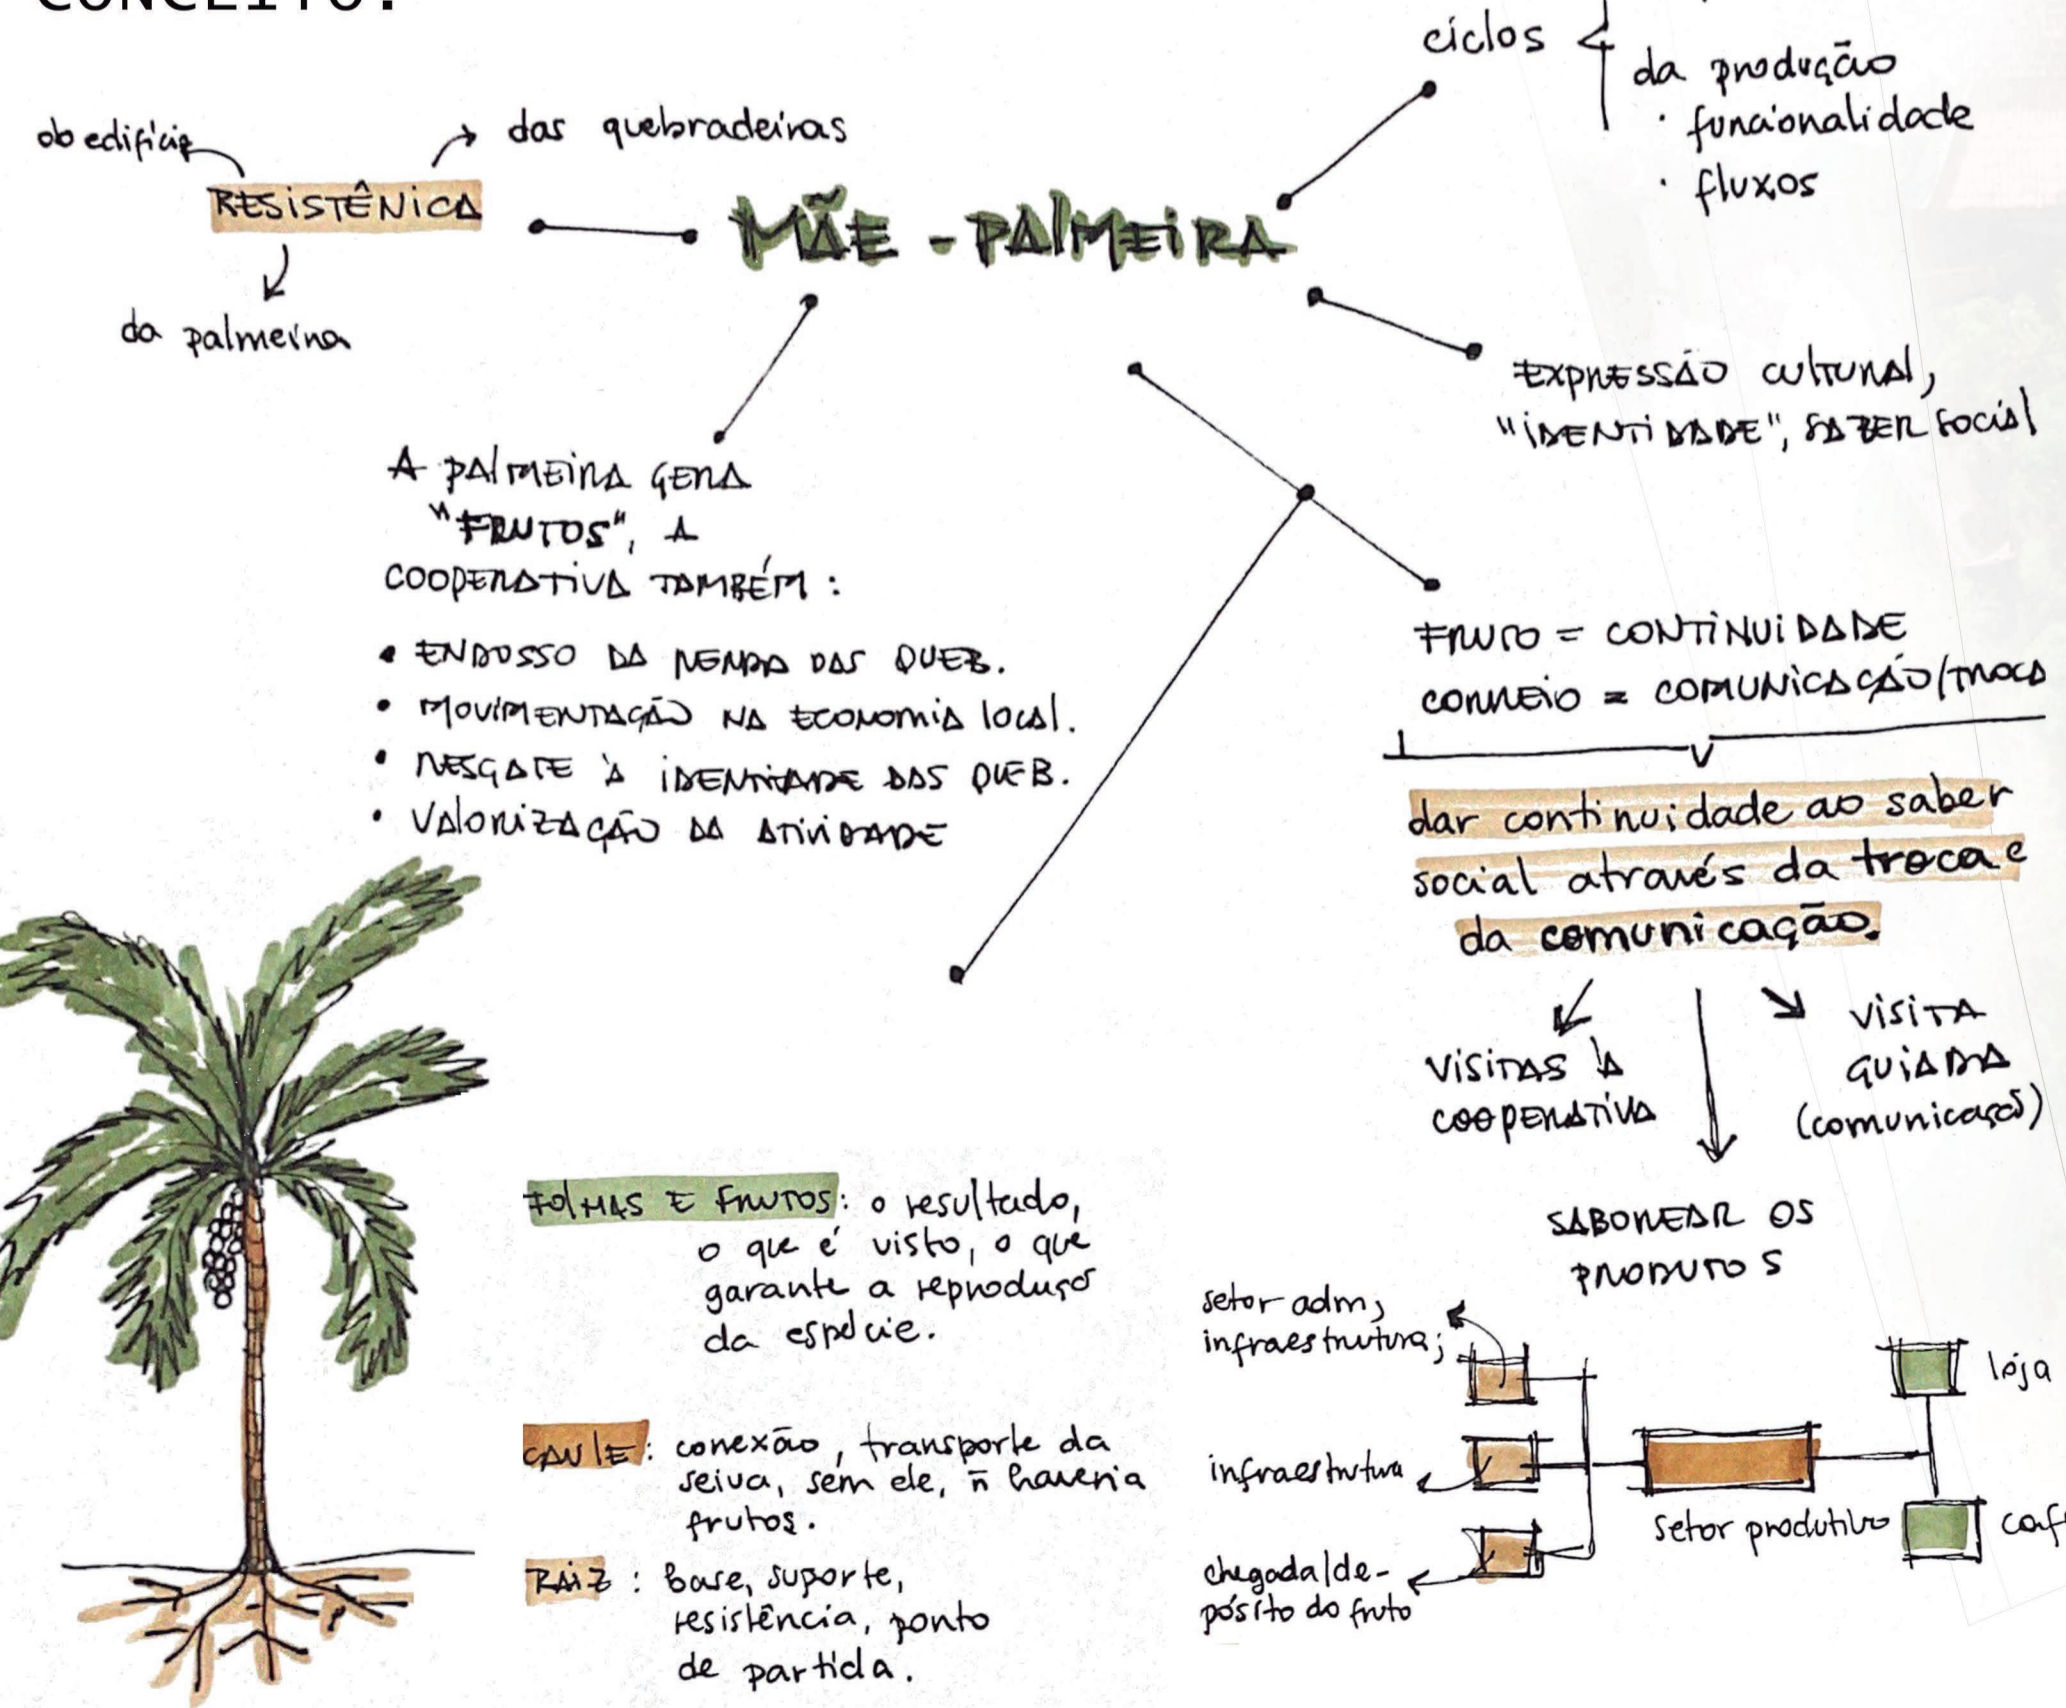 CONCEITO:
do edifício
das quebradeiras
RESISTÊNICA
da palmeira
MÃE - PALMEIRA
ciclos
da produção
· funcionalidade
· fluxos
EXPRESSÃO CULTURAL,
"IDENTIDADE", SABER SOCIAL
A PALMEIRA GERA
"FRUTOS", A
COOPERATIVA TAMBÉM:
• ENDOSSO DA RENDA DAS QUEB.
• MOVIMENTAÇÃO NA ECONOMIA LOCAL.
• RESGATE À IDENTIDADE DAS QUEB.
• VALORIZAÇÃO DA ATIVIDADE
FRUTO = CONTINUIDADE
CORREIO = COMUNICAÇÃO/TROCA
dar continuidade ao saber
social através da troca e
da comunicação.
VISITAS À
COOPERATIVA
VISITA
GUIADA
(comunicação)
SABOREAR OS
PRODUTOS
FOLHAS E FRUTOS: o resultado,
o que é visto, o que
garante a reprodução
da espécie.
CAULE: conexão, transporte da
seiva, sem ele, ñ haveria
frutos.
RAIZ: base, suporte,
resistência, ponto
de partida.
setor adm,
infraestrutura;
infraestrutura
chegada/de-
pósito do fruto
setor produtivo
loja
caf